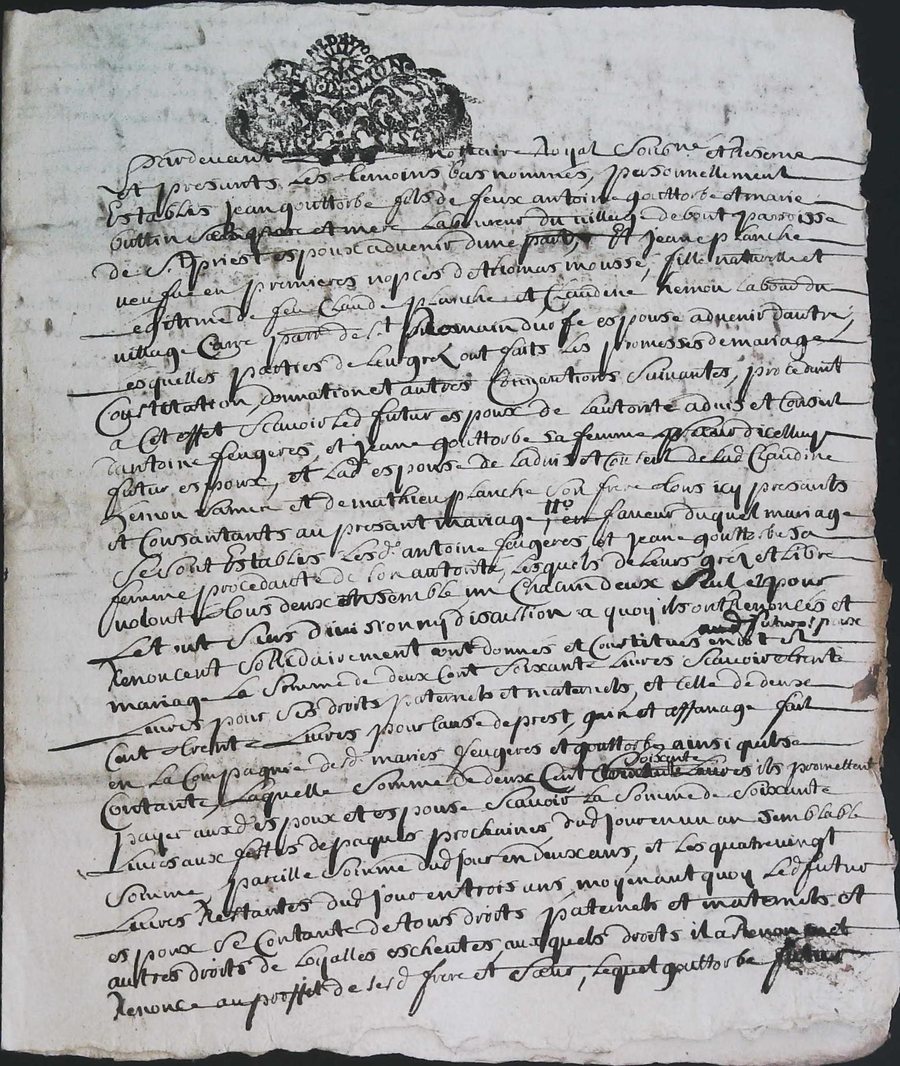 GEN D LION
Pardevant nottaire Royal soubsigné et Reservé
et presants les temoins bas nommés, personnellement
Establis jean gouttorbe fils de feux antoine gouttorbe et marie
buttin ses pere et mere laboureur du village de bout parroisse
de St priest espoux advenir d'une part, Et jeane planche
veufue en premieres nopces de thomas mousse, fille naturelle et
legitime de feu Claude planche et Claudine hernon labour du
village Carre parr de St Romain durfe espouse advenir dautre,
lesquelles parties de leur gré ont faits les promesses de mariage
Constitution, donnation et autres Conventions suivantes, procedant
a cet effet scavoir led futur espoux de lautorité advis et consent
dantoine feugeres, et jeane gouttorbe sa femme sœur dicelluy
futur espoux, et lade espouse de ladvis et consent de lad Claudine
hernon sa mere et de mathieu planche son frere tous icy presants
et Consantants au presant mariage, en faveur duquel mariage
se sont Establis lesds antoine feugeres et jeane gouttorbe sa
femme procedante de son autorité, lesquels de leurs gré et libre
volonté tous deux ensemble un chacun deux seul et pour
le tout sans division ny discution a quoy ils ont Renoncés et
Renoncent sollidairement ont donnés et Constitués en dot et aud futur espoux
mariage la somme de deux cent soixante livres scavoir trente
livres pour ses droits paternels et maternels, et celle de deux
cent trente livres pour cause de prest, gain et affanage fait
en la compagnie desd maries feugeres et gouttorbe ainsi quils se
Contante, laquelle somme de deux cent soixante livres ils promettent
payer auxds espoux et espouse scavoir la somme de soixante
livres aux festes de paques prochaines, dud jour en un an semblable
somme, pareille somme dud jour en deux ans, et les quatrevingt
livres Restantes dud jour en trois ans, moyenant quoy led futur
espoux se Contante de tous droits paternels et maternels et
autres droits de loyalles escheutes, auxquels droits il a
Renonce au proffit de sesd frere et sœur, lequel gouttorbe futur